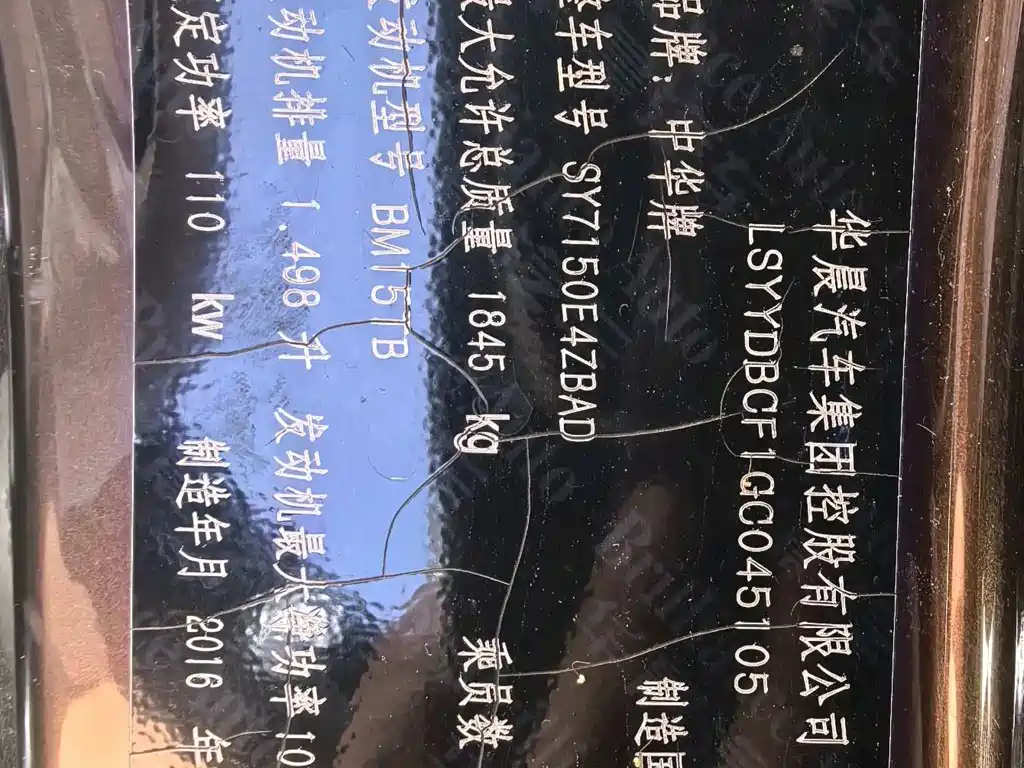 华晨汽车集团控股有限公司
LSYYDBCF1GC045105
品牌: 中华牌 制造国
整车型号 SY7150E4ZBAD
最大允许总质量 1845 kg 乘员数
发动机型号 BM15TB
发动机排量 1.498 升 发动机最大净功率 10
额定功率 110 kW 制造年月 2016 年